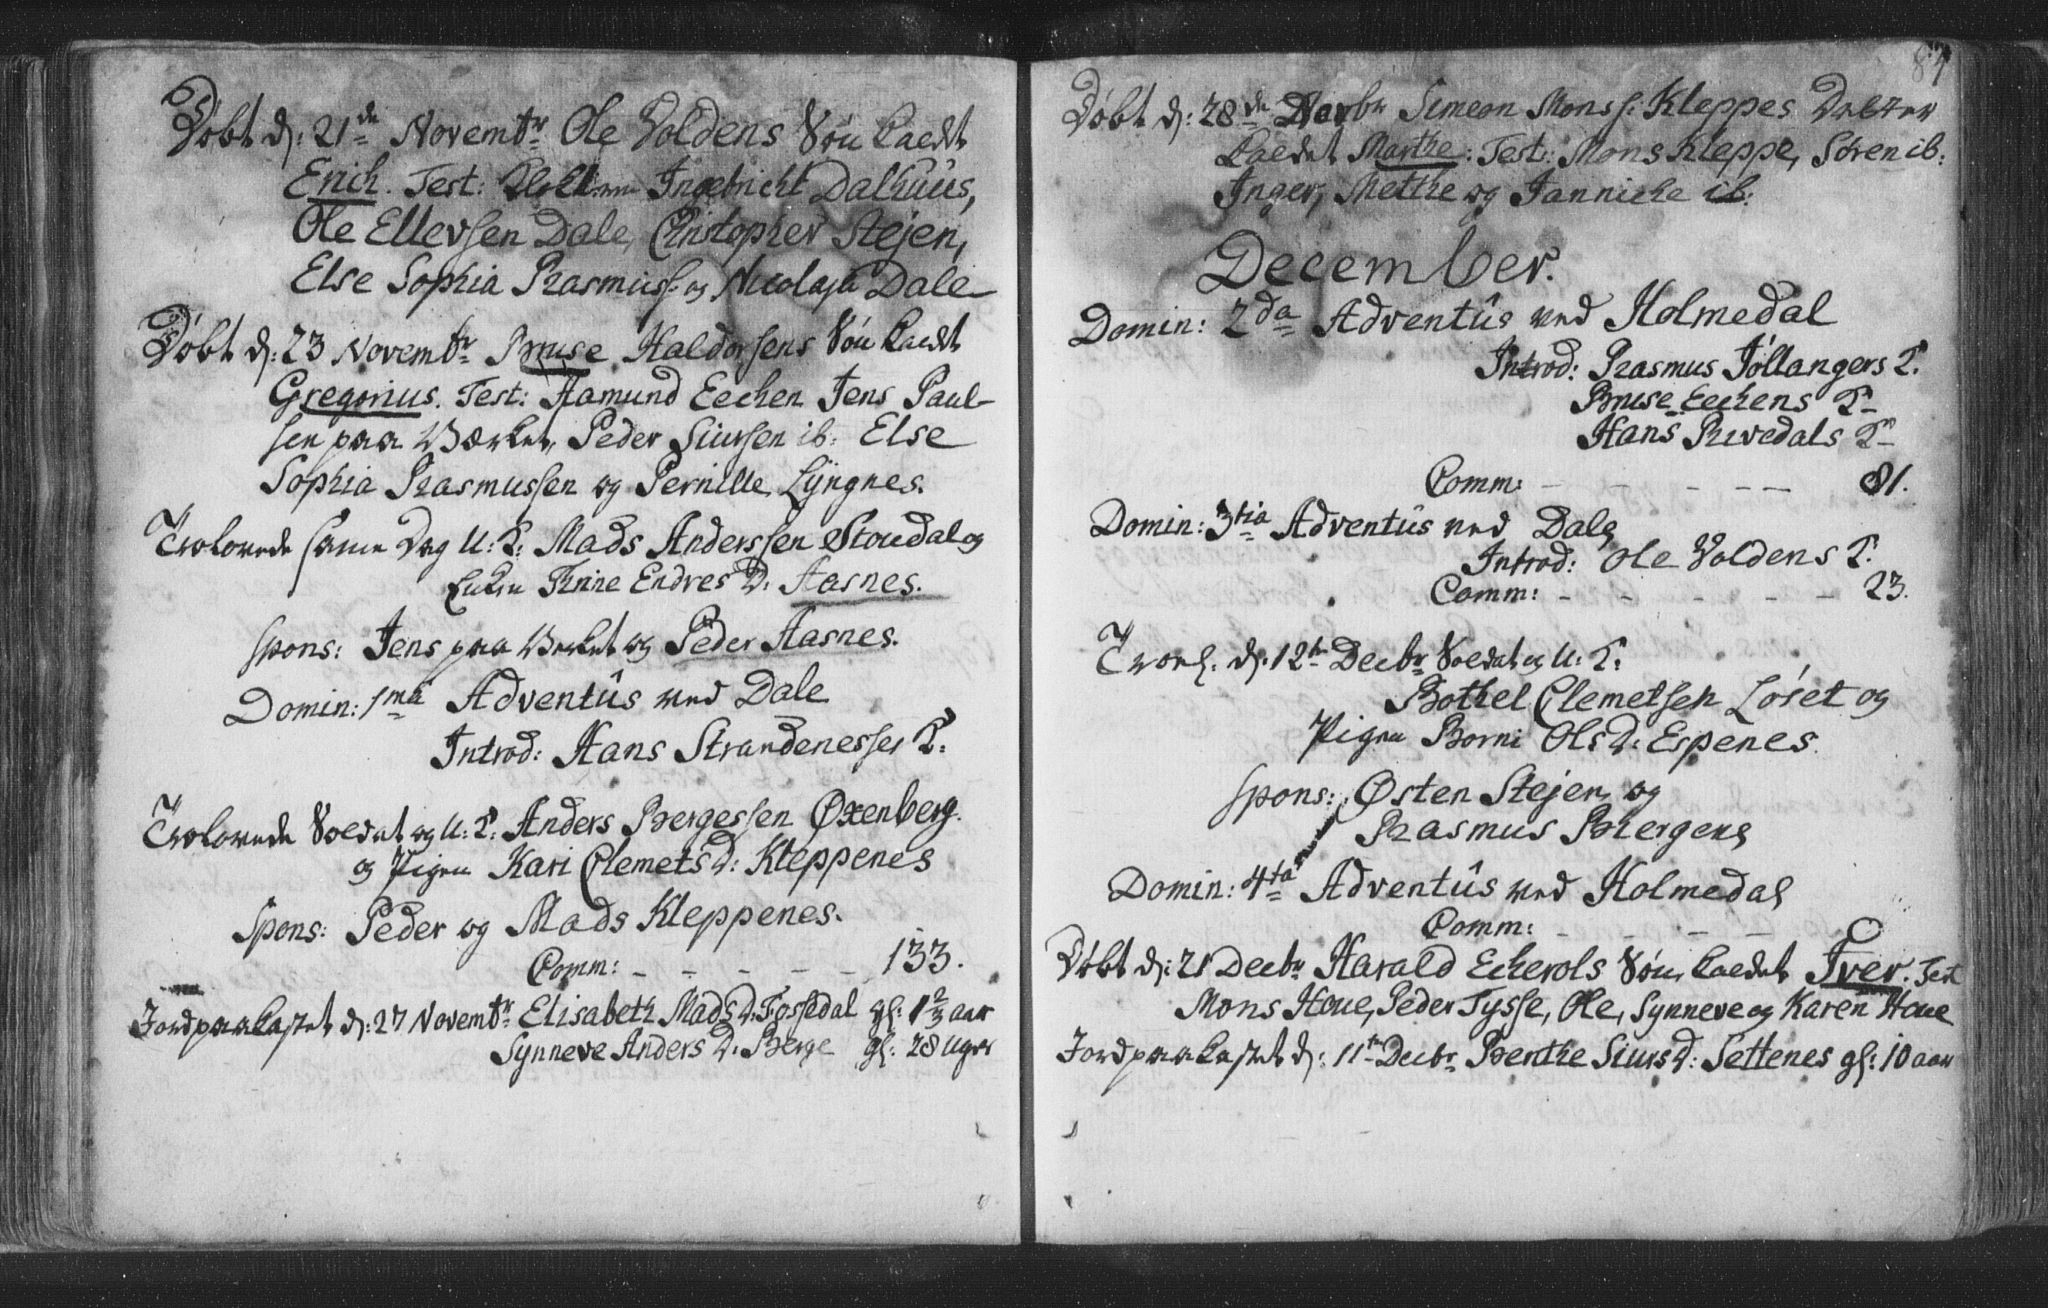 Døbt d: 21de Novembr Ole Voldens Søn kaldt
Erich. Test: Ingebricht Dalhuus,
Ole Ellevsen Dale, Christopher Stejen,
Else Sophia Rasmuss: og Nicolaja Dale
Døbt d: 23 Novembr Bruse Haldorsens Søn kaldt
Gregorius. Test: Aamund Eechen Jens Paul-
sen paa Værket, Peder Siursen ib: Else
Sophia Rasmussen og Pernille Lÿngnes.
Trolovede samme Dag U: K: Mads Anderssen Stoudal og
Enken Anne Endres D: Aasnes.
spons: Jens paa Verket og Peder Aasnes.
Domin: 1ma Adventûs ved Dale
Introd: Hans Strandenesses K:
Trolovede Soldat og U: K: Anders Bergessen Oxenberg.
og Pigen Kari Clemets D: Kleppenes
Spons: Peder og Mads Kleppenes.
Comm: - - - - - 133.
Jordpaakastet d: 27 Novembr Elisabeth Mads D: Fossedal gl: 1 2/3 aar
Synneve Anders D: Berge gl: 28 Uger
87
Døbt d: 28de Novbr Simeon Monss: Kleppes Datter
kaldet Marthe: Test: Mons Kleppe, Søren ib:
Inger, Mette og Jannicke ib:
December.
Domin: 2da Adventûs ved Holmedal
Introd: Rasmus Jóllangers K:
Bruse Eechens K-
Hans Rivedals K-
Comm: - - - - - 81.
Domin: 3tia Adventûs ved Dale
Introd: Ole Voldens K:
Comm: - - - - - 23.
Trol: d: 12te Decbr Soldat og U: K:
Bothel Clemetsen Løset og
Pigen Borni Ols D: Espenes.
spons: Østen Stejen og
Rasmus Bergene
Domin: 4ta Adventûs ved Holmedal
Comm: - - - -
Døbt d: 21 Decbr Harald Echerols Søn, kaldet Iver. Test
Mons Houe, Peder Tysse, Ole, Synneve og Karen Houe
Jordpaakastet d: 11te Decbr Benthe Siurs D: Settenes gl: 10 aar